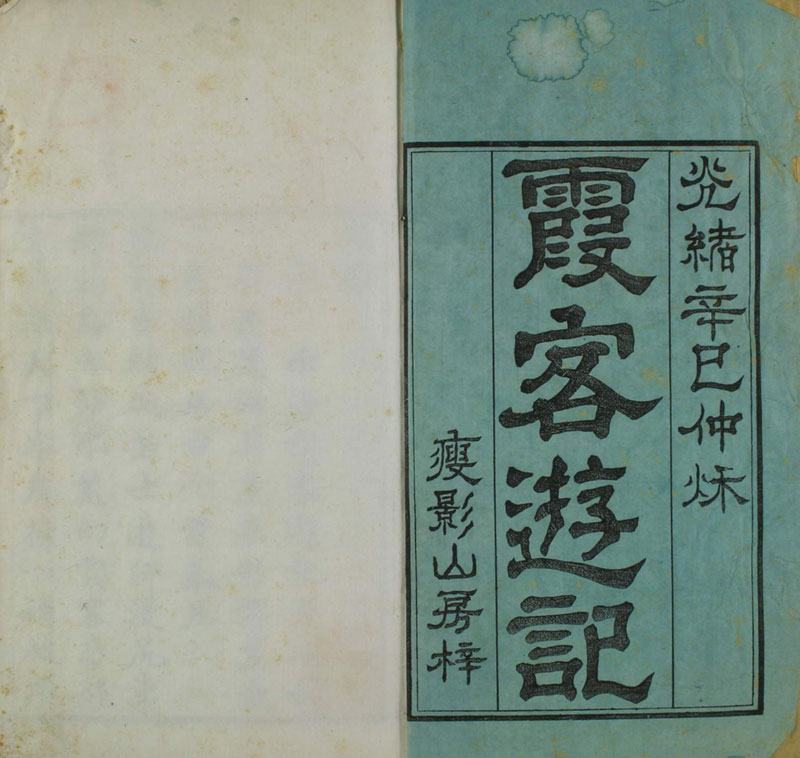 光緒辛巳仲秌
霞客遊記
瘦影山房梓